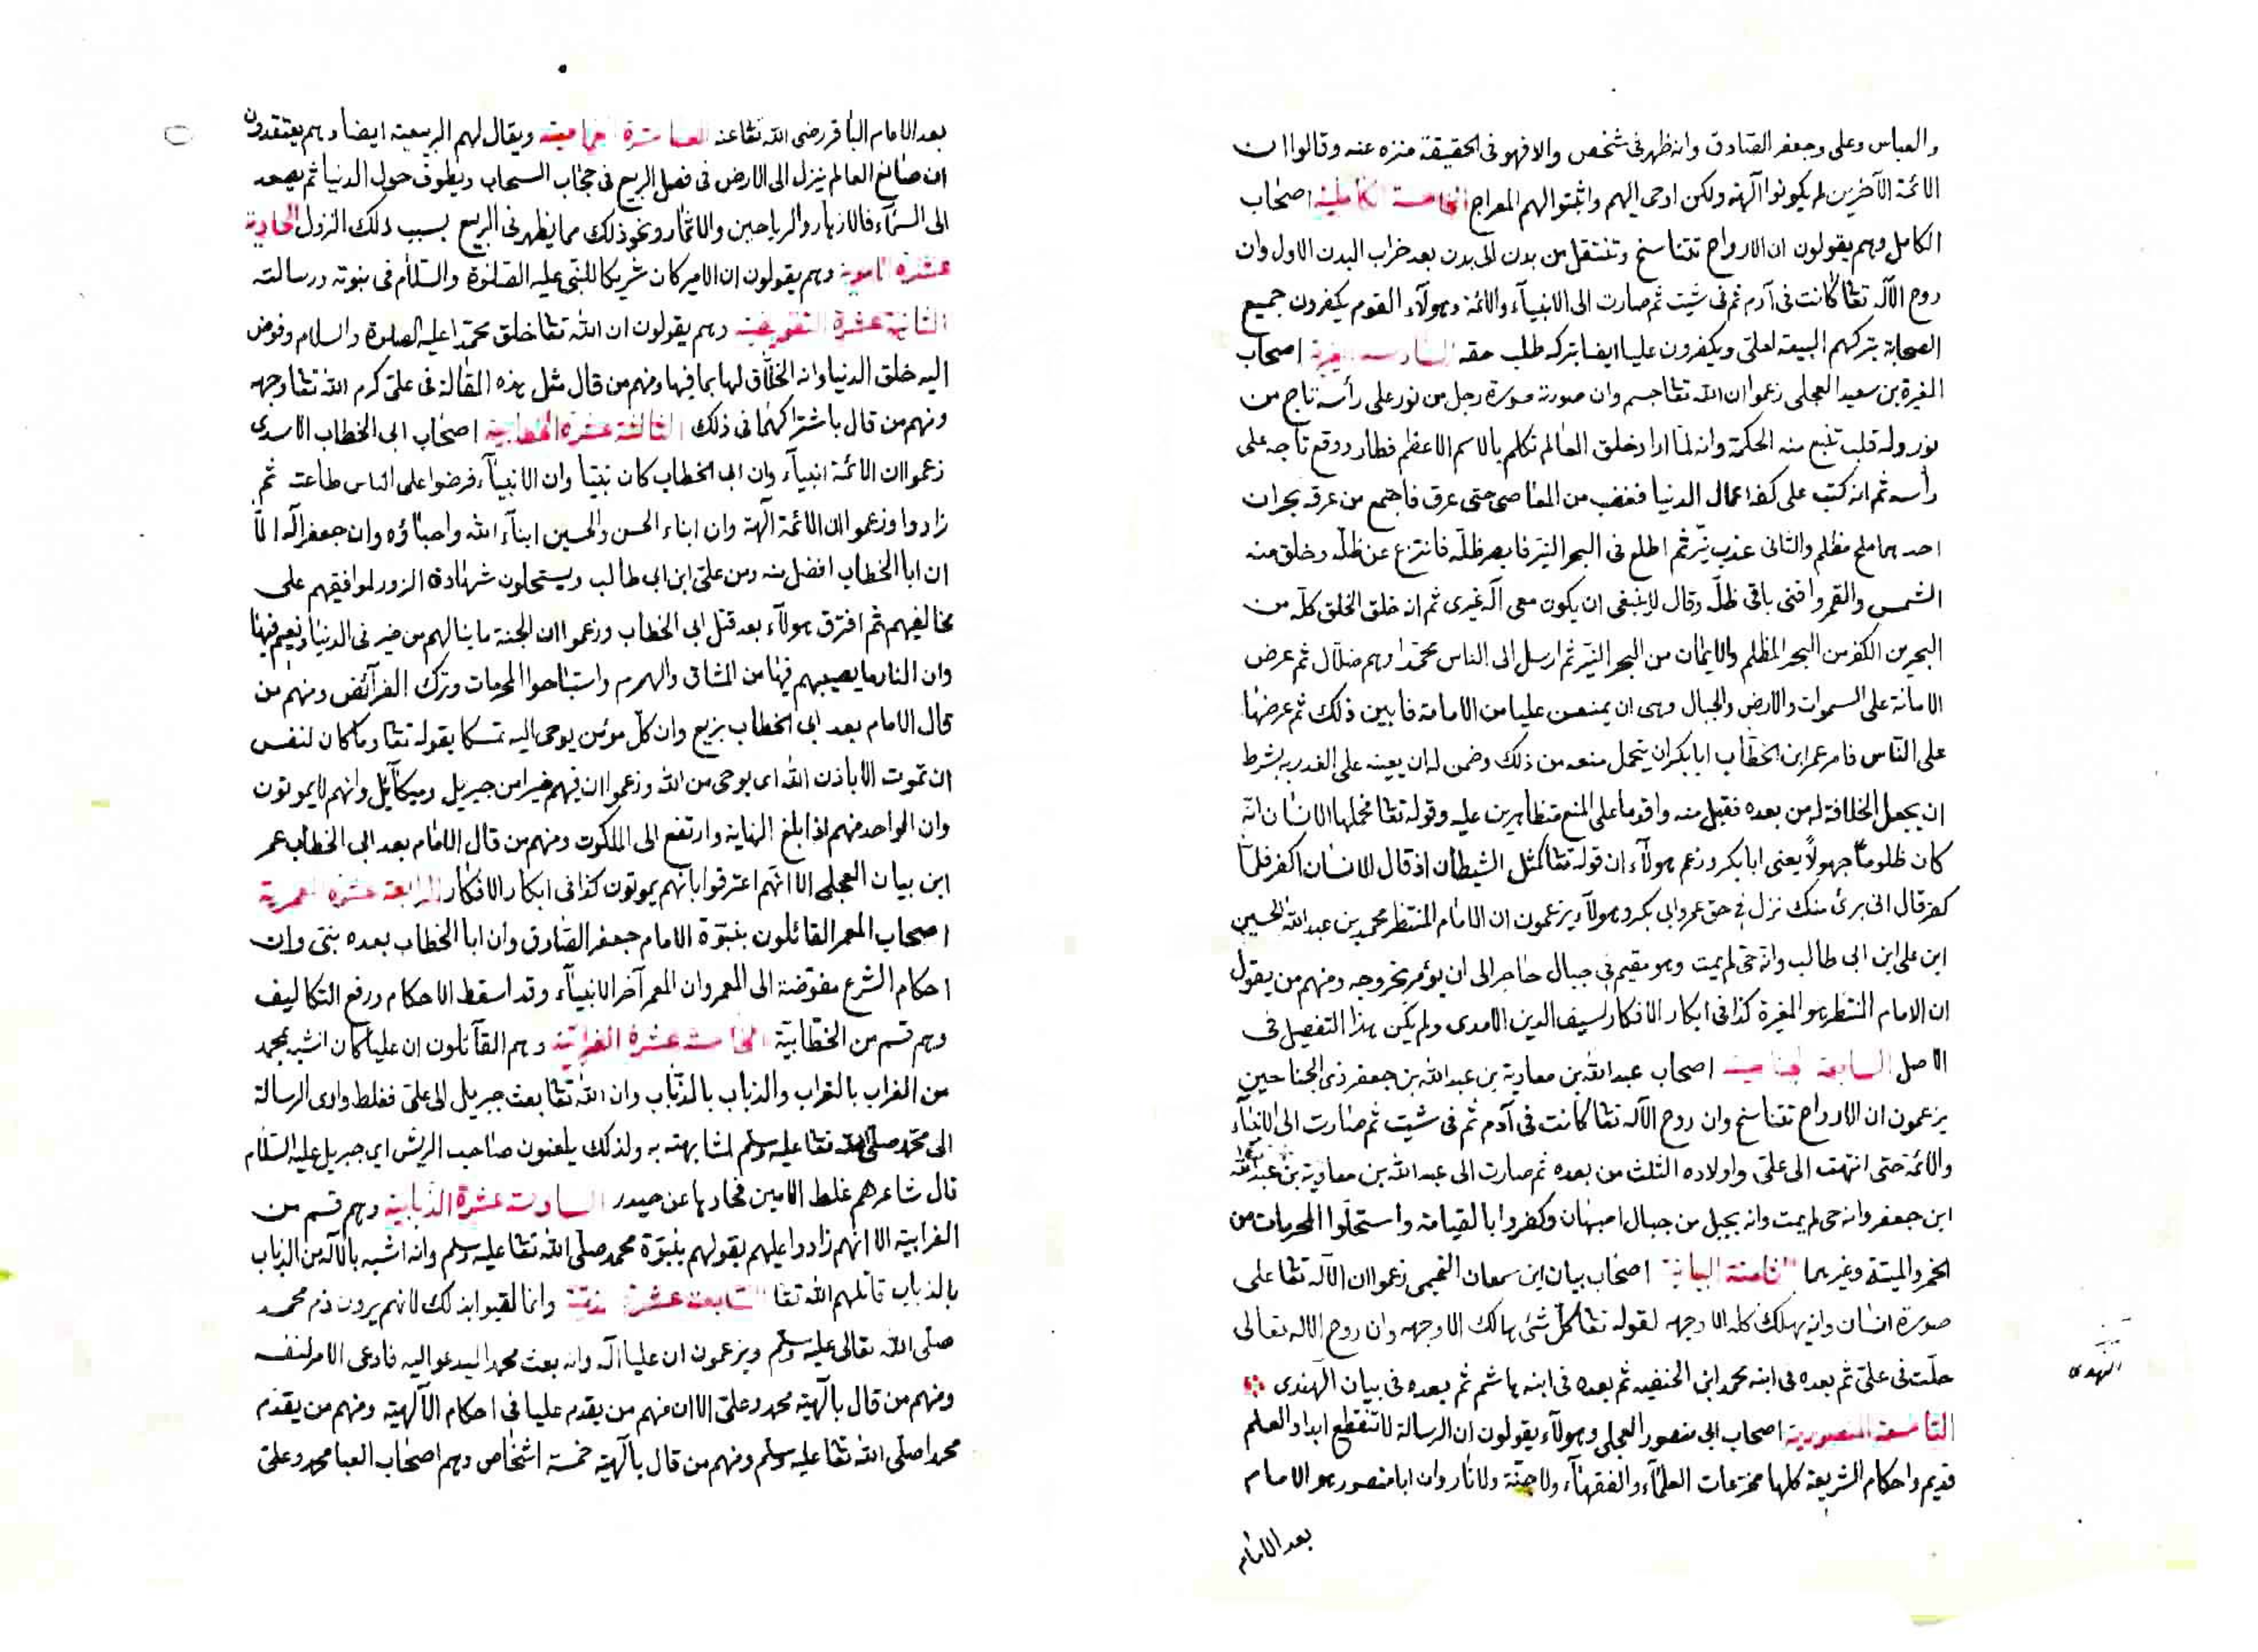 والعباس وعلى وجعفر الصادق وانه ظهر فى شخص والا فهو فى الحقيقة منزه عنه وقالوا ان
الائمة الآخرين لم يكونوا آلهة ولكن اوحى اليهم واثبتوا لهم المعراج الخامسة الكاملية اصحاب
الكامل وهم يقولون ان الارواح تتناسخ وتنتقل من بدن الى بدن بعد خراب البدن الاول وان
روح الآله تعا كانت فى آدم ثم فى شيت ثم صارت الى الانبيآء والائمة وهولآء القوم يكفرون جميع
الصحابة بتركهم البيعة لعلى ويكفرون عليا ايضا بتركه طلب حقه السادسة المغيرية اصحاب
المغيرة بن سعيد العجلى زعموا ان الله تعا جسم وان صورته صورة رجل من نور على رأسه تاج من
نور وله قلب تنبع منه الحكمة وانه لما اراد خلق العالم تكلم بالاسم الاعظم فطار ووقع تاجه على
رأسه ثم انه كتب على كفه اعمال الدنيا فغضب من المعاصى حتى عرق فاجتمع من عرقه بحران
احدهما ملح مظلم والثانى عذب نيّر ثم اطلع فى البحر النيّر فابصر ظلّه فانتزع عن ظلّه وخلق منه
الشمس والقمر وافنى باقى ظلّه وقال لا ينبغى ان يكون معى آله غيرى ثم انه خلق الخلق كلّه من
البحرين الكفر من البحر المظلم والايمان من البحر النيّر ثم ارسل الى الناس محمّدا وهم ضلّال ثم عرض
الامانة على السموات والارض والجبال وهى ان يمنعن عليا من الامامة فابين ذلك ثم عرضها
على النّاس فامر عمر ابن الخطّاب ابا بكر ان يتحمل منعه من ذلك وضمن له ان يعينه على الغدر به بشرط
ان يجعل الخلافة له من بعده فقبل منه واقدما على المنع متظاهرين عليه وقوله تعا فحملها الانسان انّه
كان ظلوماً جهولاً يعنى ابا بكر وزعم هولآء ان قوله تعا كمثل الشيطان اذ قال الانسان اكفر فلمّا
كفر قال انى برئ منك نزل فى حق عمر وابى بكر وهولآء يزعمون ان الامام المنتظر محمد بن عبد الله الحسين
ابن على ابن ابى طالب وانه حى لم يمت وهو مقيم فى جبال حاجر الى ان يؤمر بخروجه ومنهم من يقول
ان الامام المنتظر هو المغيرة كذا فى ابكار الافكار لسيف الدين الآمدى ولم يكن هذا التفصيل فى
الاصل السابعة الجناحية اصحاب عبد الله بن معاوية بن عبد الله بن جعفر ذى الجناحين
يزعمون ان الارواح تتناسخ وان روح الآله تعا كانت فى آدم ثم فى شيت ثم صارت الى الانبيآء
والائمة حتى انتهت الى على واولاده الثلث من بعده ثم صارت الى عبد الله بن معاوية بن عبد الله
ابن جعفر وانه حى لم يمت وانه بجبل من جبال اصبهان وكفروا بالقيامة واستحلّوا المحرمات من
الخمر والميتة وغيرهما الثامنة البيانية اصحاب بيان ابن سمعان التميمى زعموا ان الآله تعا على
صورة انسان وانه يهلك كله الا وجهه لقوله تعا كلّ شئ هالك الا وجهه وان روح الاله تعالى
حلّت فى على ثم بعده فى ابنه محمد ابن الحنفيه ثم بعده فى ابنه هاشم ثم بعده فى بيان الهندى
النهدى
التاسعة المنصورية اصحاب ابى منصور العجلى وهولآء يقولون ان الرسالة لا تنقطع ابدا والعلم
قديم واحكام الشريعة كلها مخترعات العلمآء والفقهآء ولا جنّة ولا نار وان ابا منصور هو الامام
بعد الامام
بعد الامام الباقر رضى الله تعا عنه العاشرة ويقال لهم الربيعية ايضا وهم يعتقدون
ان صانع العالم ينزل الى الارض فى فصل الربيع فى حجاب السحاب ويطوف حول الدنيا ثم يصعد
الى السمآء فالازهار والرياحين والاثمار ونحو ذلك مما يظهر فى الربيع بسبب ذلك النزول الحادية
عشرة وهم يقولون ان الامير كان شريكا للنبى عليه الصلوة والسلام فى نبوته ورسالته
الثانية عشرة التفويضية وهم يقولون ان الله تعا خلق محمّدا عليه الصلوة والسلام وفوض
اليه خلق الدنيا وانه الخلّاق لها بما فيها ومنهم من قال مثل هذه المقالة فى على كرم الله تعا وجهه
ومنهم من قال باشتراكهما فى ذلك الثالثة عشرة الخطابية اصحاب ابى الخطاب الاسدى
زعموا ان الائمة انبيآء وان ابا الخطاب كان نبيّا وان الانبيآء فرضوا على الناس طاعته ثم
زادوا وزعموا ان الائمة آلهة وان ابناء الحسن والحسين ابنآء الله واحباؤه وان جعفر آله الّا
ان ابا الخطاب افضل منه ومن على ابن ابى طالب ويستحلون شهادة الزور لموافقيهم على
مخالفيهم ثم افترق هولآء بعد قتل ابى الخطاب وزعموا ان الجنة ما ينالهم من خير فى الدنيا ونعيم فيها
وان النار ما يصيبهم فيها من المشاق والهرم واستباحوا المحرمات وترك الفرآئض ومنهم من
قال الامام بعد ابى الخطاب بزيع وان كل مؤمن يوحى اليه تمسكا بقوله تعا وما كان لنفس
ان تموت الا باذن الله اى يوحى من الله وزعموا ان فيهم خيرا من جبريل وميكآئل وانهم لا يموتون
وان الواحد منهم اذا بلغ النهاية وارتفع الى الملكوت ومنهم من قال الامام بعد ابى الخطاب عمر
ابن بيان العجلى الا انّهم اعترفوا بانّهم يموتون كذا فى ابكار الافكار الرابعة عشرة المعمرية
اصحاب المعمر القائلون بنبوّة الامام جعفر الصادق وان ابا الخطاب بعده نبى وان
احكام الشرع مفوّضة الى المعمر وان المعمر آخر الانبيآء وقد اسقط الاحكام ورفع التكاليف
وهم قسم من الخطّابيّة الخامسة عشرة الغرابية وهم القآئلون ان عليا كان اشبه بمحمد
من الغراب بالغراب والذباب بالذباب وان الله تعا بعث جبريل الى على فغلط وادى الرسالة
الى محمّد صلى الله تعا عليه وسلم لمشابهته به ولذلك يلعنون صاحب الريش اي جبريل عليه السّلام
قال شاعرهم غلط الامين فحادها عن حيدر السادسة عشرة الذبابية وهم قسم من
الغرابية الا انهم زادوا عليهم بقولهم بنبوّة محمد صلى الله تعا عليه وسلم وانه اشبه بالآله من الذباب
بالذباب قاتلهم الله تعا السابعة عشرة الذمّية وانما لقبوا بذلك لانهم يرون ذم محمد
صلى الله تعالى عليه وسلم ويزعمون ان عليا آله وانه بعث محمدا ليدعو اليه فادعى الامر لنفسه
ومنهم من قال بآلهية محمد وعلى الا ان منهم من يقدم عليا فى احكام الآلهية ومنهم من يقدم
محمدا صلى الله تعا عليه وسلم ومنهم من قال بآلهية خمسة اشخاص وهم اصحاب العبا محمد وعلى